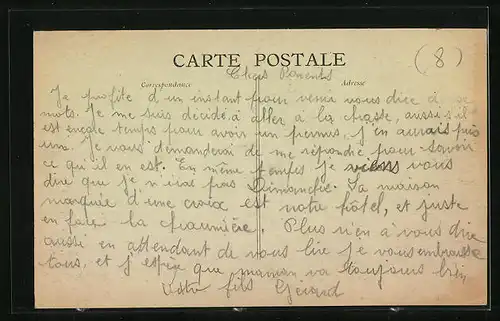 CARTE POSTALE
(8)
Correspondance
Adresse
Chers Parents
Je profite d'un instant pour venir vous dire
mots. Je me suis décidé à aller à la chasse, aussi s'il
est encore temps pour avoir un permis, j'en aurais pris
un. Je vous demanderai de me répondre pour savoir
ce qu'il en est. En même temps je viens vous
dire que je n'irai pas Dimanche. La maison
marquée d'une croix est notre hôtel, et juste
en face la chaumière. Plus rien a vous dire
aussi en attendant de vous lire je vous embrasse
tous, et j'espère que maman va toujours bien
Votre fils Gérard